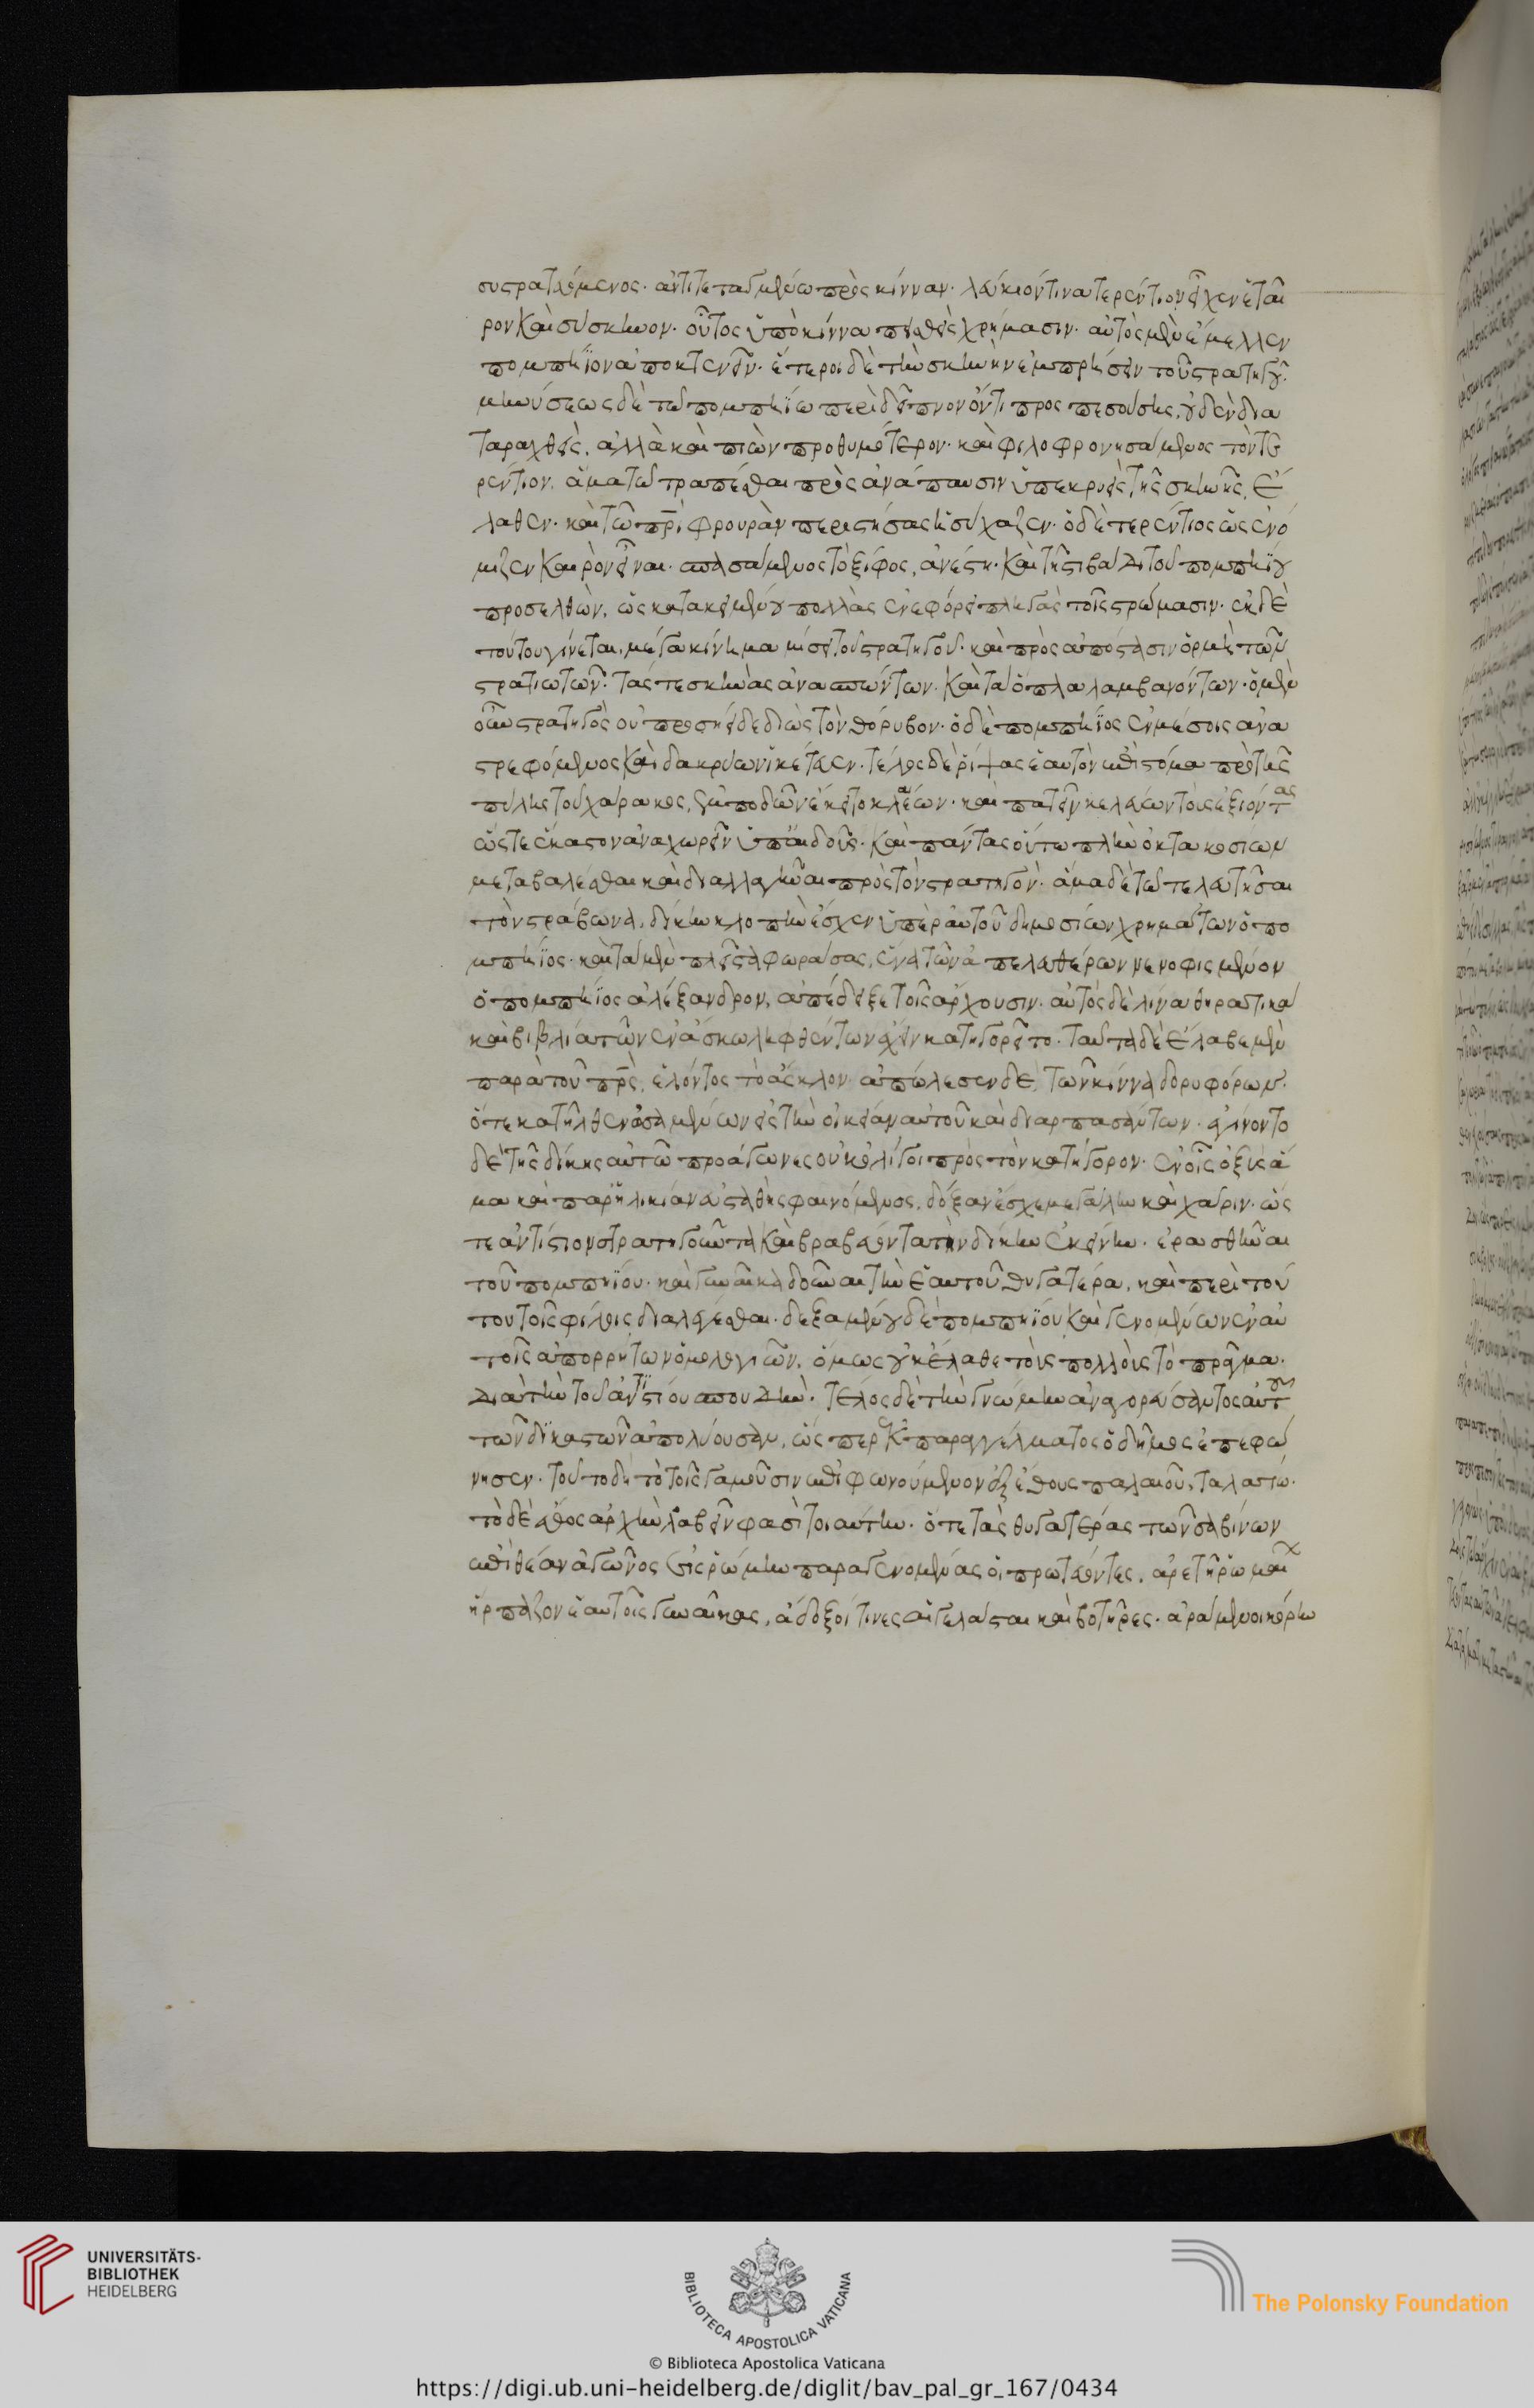 συστρατευόμενος· ἀντιτεταγμένω πρὸς κίνναν· λεύκιόν τινα τερέντιον εἶχεν ἑταῖ
ρον καὶ σύσκηνον· οὗτος ὑπὸ κίννα πεισθεὶς χρήμασιν· αὐτὸς μὲν ἔμελλεν
πομπήϊον ἀποκτενεῖν· ἕτεροι δὲ τὴν σκηνὴν ἐμπρήσειν τοῦ στρατηγοῦ·
μηνύσεως δὲ τῶ πομπηΐω περὶ δεῖπνον ὄντι προσπεσούσης, οὐδὲν δια
ταραχθεὶς, ἀλλὰ καὶ πιὼν προθυμότερον· καὶ φιλοφρονησάμενος τὸν τε
ρέντιον, ἅμα τῶ τραπέσθαι πρὸς ἀνάπαυσιν ὑπεκρυεὶς τῆς σκηνῆς, ἔ
λαθεν· καὶ τῶ πρὶ φρουρὰν περιστήσας ἡσύχαζεν· ὁ δὲ τερέντιος ὡς ἐνό
μιζεν καιρὸν εἶναι· σπασάμενος τὸ ξίφος, ἀνέστη· καὶ τῆ στιβάδι τοῦ πομπηΐου
προσελθὼν, ὡς κατακειμένου πολλὰς ἐνεφόρει πληγὰς τοῖς στρώμασιν· ἐκ δὲ
τούτου γίνεται, μέγα κίνημα μίσει τοῦ στρατηγοῦ· καὶ πρὸς ἀπόστασιν ὁρμὴ τῶν
στρατιωτῶν· τάς τε σκηνὰς ἀνασπώντων· καὶ τὰ ὅπλα λαμβανόντων· ὁ μὲν
οὖν στρατηγὸς οὐ προσήει δεδιὼς τὸν θόρυβον· ὁ δὲ πομπήϊος ἐν μέσοις ἀνα
στρεφόμενος καὶ δακρύων ἱκέτευεν· τέλος δὲ ῥίψας ἑαυτὸν ἐπὶ στόμα πρὸ τῆς
πύλης τοῦ χάρακος, ἐμποδὼν ἔκειτο κλαίων· καὶ πατεῖν κελεύων τοὺς ἐξιόντας
ὥστε ἕκαστον ἀναχωρεῖν ὑπ' αἰδοῦς· καὶ πάντας οὕτω πλὴν ὀκτακοσίων
μεταβαλέσθαι καὶ διαλλαγῆναι πρὸς τὸν στρατηγὸν· ἅμα δὲ τῶ τελευτῆσαι
τὸν στράβωνα, δίκην κλοπῆν ἔσχεν ὑπὲρ αὐτοῦ δημοσίων χρημάτων ὁ πο
μπήϊος· καὶ τὰ μὲν πλεῖστα φωράσας, ἕνα τῶν ἀπελευθέρων νενοσφισμένον
ὁ πομπήϊος ἀλέξανδρον, ἀπέδειξε τοῖς ἄρχουσιν· αὐτὸς δὲ λίνα θηρατικὰ
καὶ βιβλία τῶν ἐν ἀσκωληφθέντων ἔχειν κατηγορεῖτο· ταῦτα δὲ ἔλαβε μὲν
παρὰ τοῦ πρς, ἑλόντος τὸ ἄσκλον ἀπώλεσεν δὲ, τῶν κίννα δορυφόρων·
ὅτε κατῆλθεν ὠσαμένων εἰς τὴν οἰκίαν αὐτοῦ καὶ διαρπασάντων· ἐγίνοντο
δὲ τῆς δίκης αὐτῶ προάγωνες οὐκ ὀλίγοι πρὸς τὸν κατήγορον· ἐν οἷς ὀξὺς ἅ
μα καὶ παρ' ἡλικίαν εὐσταθὴς φαινόμενος, δόξαν ἔσχε μεγάλην καὶ χάριν· ὥς
τε ἀντίστιον στρατηγοῦντα καὶ βραβεύοντα τὴν δίκην ἐκείνην· ἐρασθῆναι
τοῦ πομπηΐου· καὶ γυναῖκα δοῦναι τὴν ἑαυτοῦ θυγατέρα, καὶ περὶ τού
του τοῖς φίλοις διαλέγεσθαι· δεξαμένου δὲ πομπηΐου καὶ γενομένων ἐν αὐ
τοῖς ἀπορρήτων ὁμολογιῶν, ὅμως οὐκ ἔλαθε τοὺς πολλοὺς τὸ πρᾶγμα·
διὰ τὴν τοῦ ἀντιστίου σπουδὴν· τέλος δὲ τὴν γνώμην ἀναγορεύσαντος αὐτοῦ
τῶν δικαστῶν ἀπολύουσαν, ὥσπερ ἐκ παραγγέλματος ὁ δῆμος ἐπεφώ
νησεν· τοῦτο δὴ τὸ τοῖς γαμοῦσιν ἐπιφωνούμενον ἐξ ἔθους παλαιοῦ, ταλασίω·
τὸ δὲ ἔθος ἀρχὴν λαβεῖν φασὶ τοιαύτην· ὅτε τὰς θυγατέρας τῶν σαβίνων
ἐπὶ θέαν ἀγῶνος εἰς ῥώμην παραγενομένας οἱ πρωτεύοντες, ἀρετῆ ῥωμαί
ἥρπαζον ἑαυτοῖς γυναῖκας, ἄδοξοί τινες αἰγελάσται καὶ βοτῆρες· ἀράμενοι κόρην
UNIVERSITÄTS-
BIBLIOTHEK
HEIDELBERG
BIBLIOTECA APOSTOLICA VATICANA
© Biblioteca Apostolica Vaticana
The Polonsky Foundation
https://digi.ub.uni-heidelberg.de/diglit/bav_pal_gr_167/0434